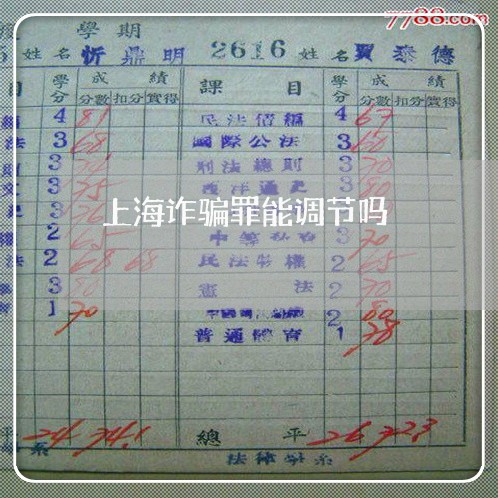 7788.com
學期
姓名 忻鼎明 2616 姓名 賈泰德
目 學分 成績 課目 學分 成績
分數 扣分 實得 分數 扣分 實得
4 81 民法債編 4 67
法 3 68 國際公法 3 60
3 刑法總則 3 70
3 75 西洋通史 3 80
上海诈骗罪能调节吗
2 65 3 70
法 2 68 68 民法物權 2 65
3 80 憲法 2 70
1 70 2 80
普通體育 1 78
平 24 74.1 總平 26 72.3
系 法律學系